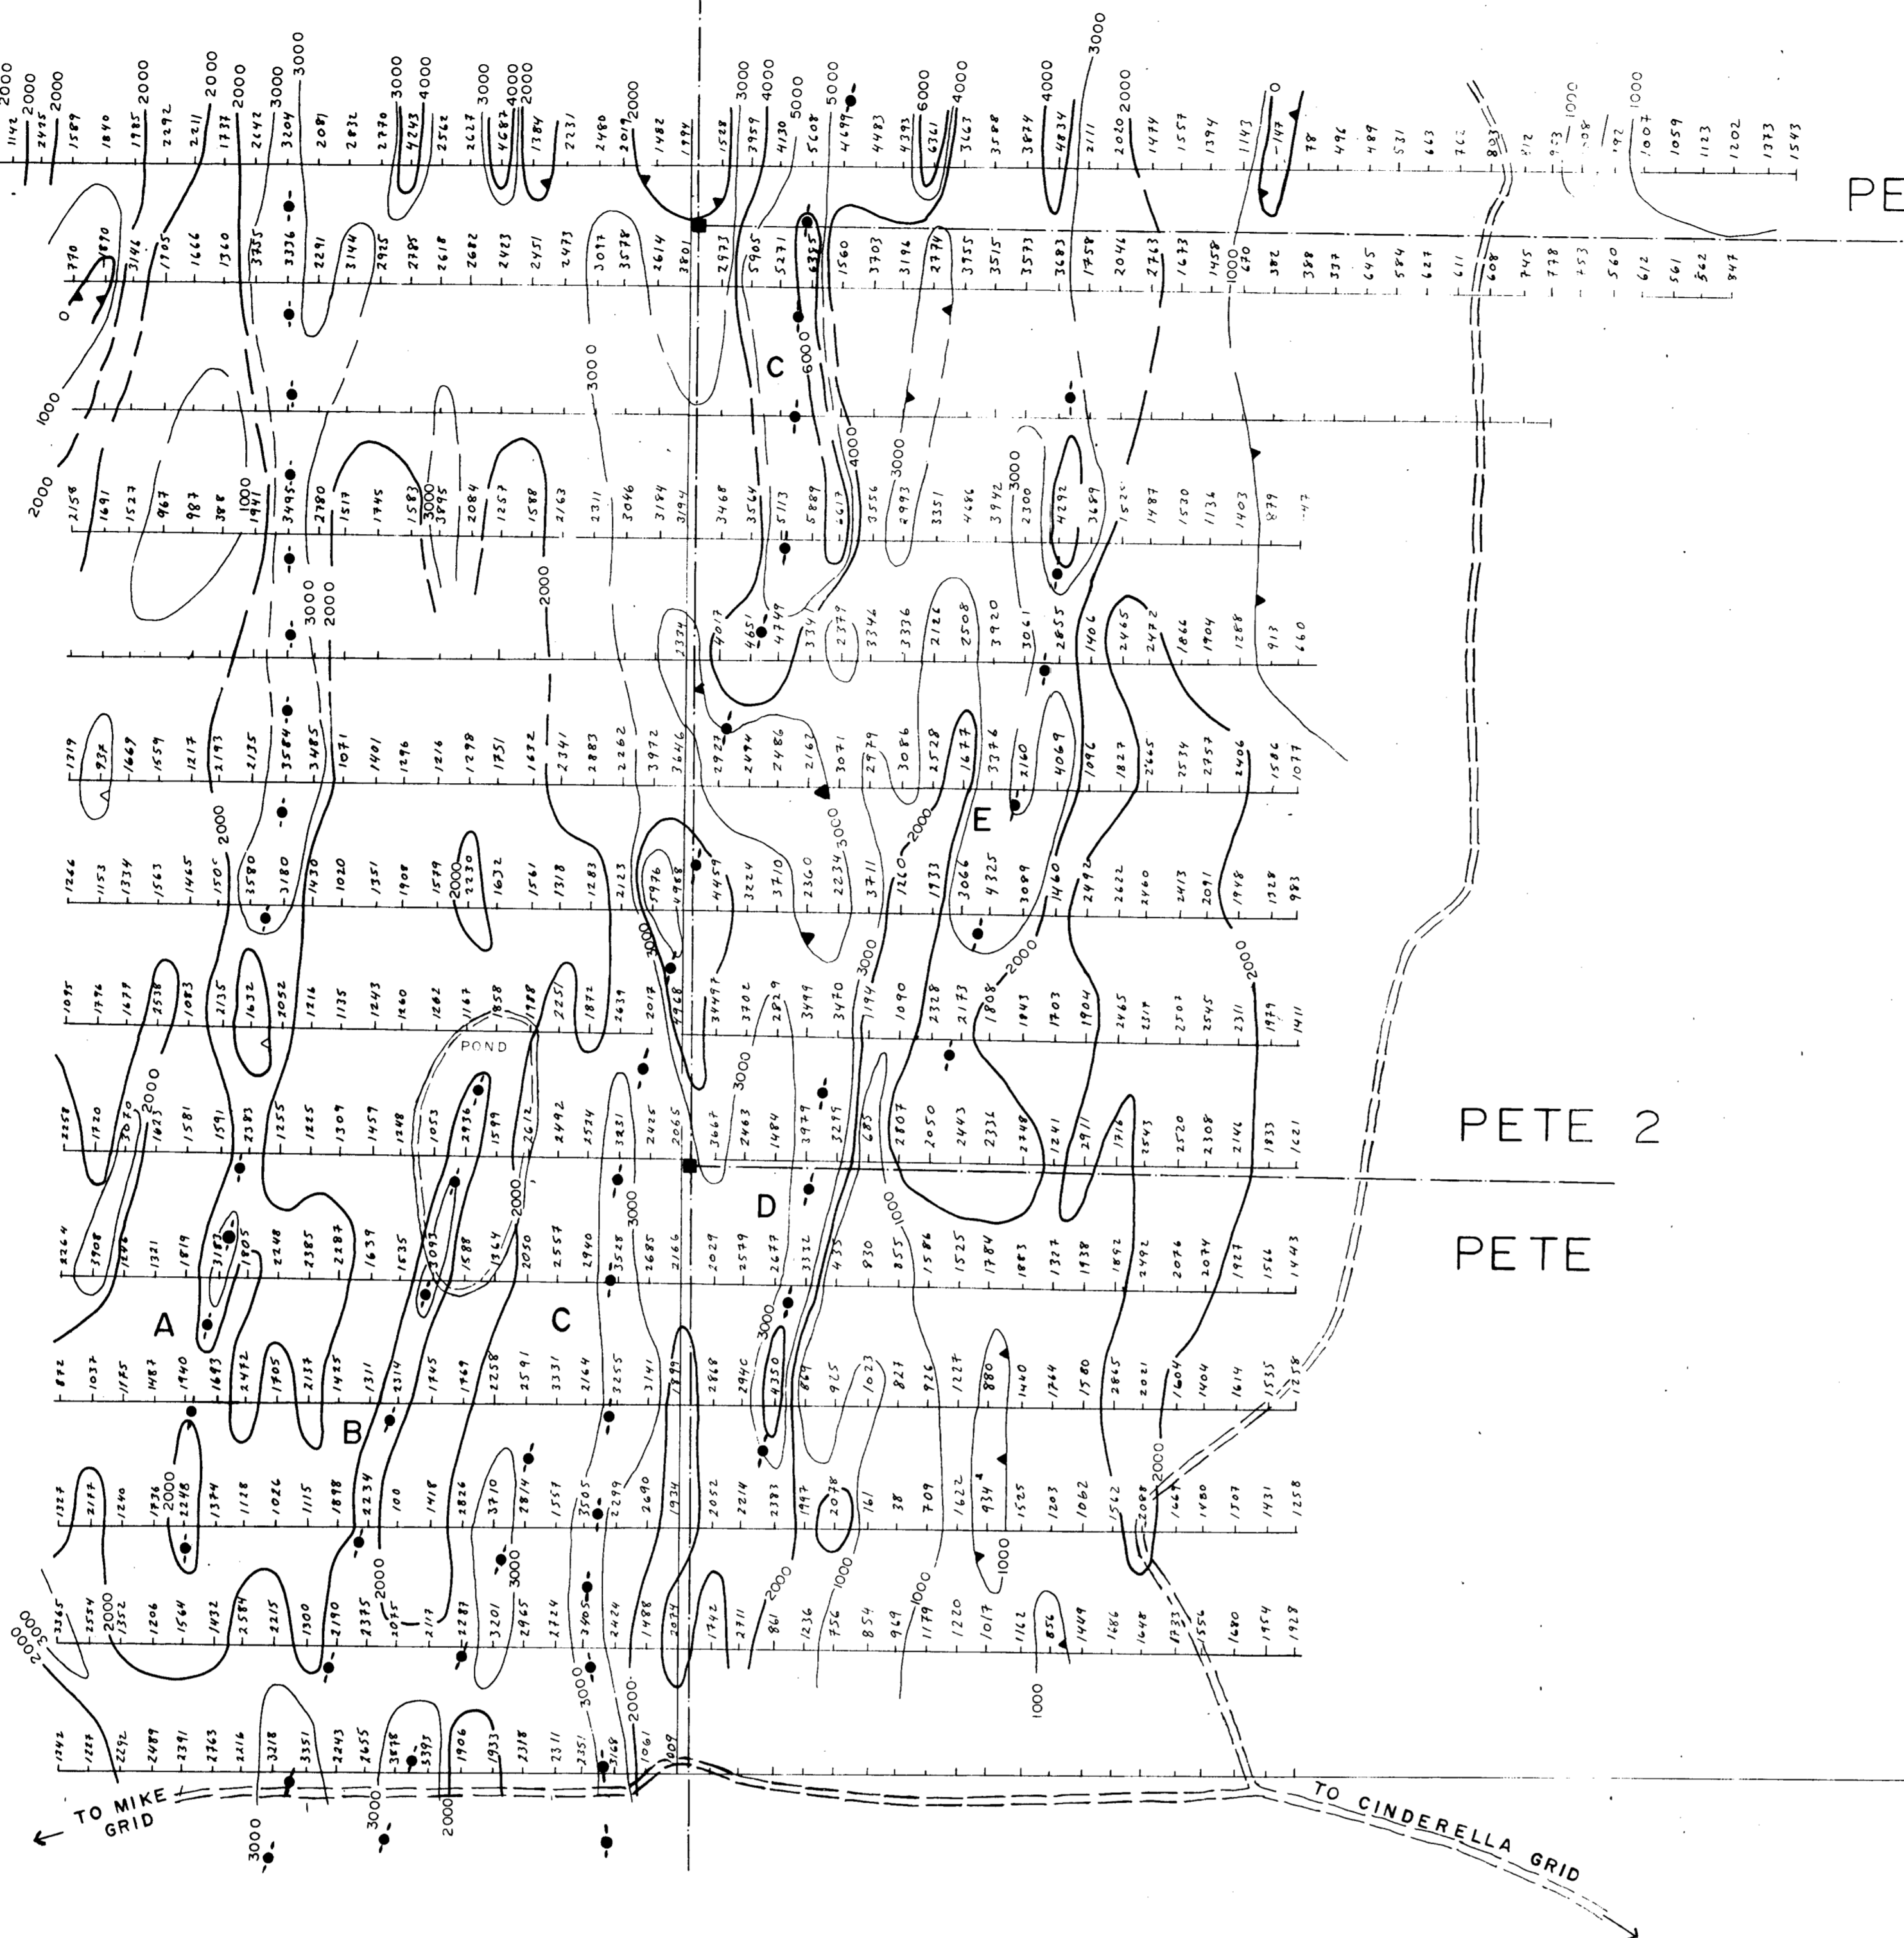 2000 2000 2000 2000 2000 2000 3000 3000 3000 4000 3000 4000 2000 2000 3000 4000 5000 5000 6000 4000 4000 3000 2000 0 1000 1000
1142 2425 1589 1840 1985 2292 2211 1737 2642 3204 2081 2832 2770 4243 2562 2627 4687 1384 2231 2480 2019 1482 1994 1528 3959 4130 5608 4699 4483 4393 6361 3663 3588 3874 4834 2111 2020 1474 1557 1394 1143 -147 78 496 489 531 663 803 812 1007 1059 1123 1202 1373 1543
PE
770 4890 3146 1705 1666 1360 3755 3336 2291 3144 2925 2785 2618 2682 2423 2451 2473 3097 3578 2614 3801 2973 5905 5271 6385 1560 3703 3196 2774 3955 3515 3573 3683 1758 2046 2763 1673 1458 670 382 388 337 645 584 627 611 608 745 778 753 560 612 561 562 847
0 1000
C 6000
1000 3000
2000 1000 3000 4000 3000 3000
2158 1691 1527 967 987 388 1941 3495 2780 1517 1745 1583 3895 2084 1257 1588 2163 2311 3046 3184 3194 3468 3564 5113 5889 6617 3556 2993 3351 4686 3942 2300 4292 3689 1487 1530 1136 1403 879
3000 2000 2000
2334 4017 4651 4749 334 2379 3346 3336 2126 2508 3920 3061 2855 1406 2465 2472 1866 1904 1288 913 660
1319 937 1669 1559 1217 2193 2135 3584 3485 1071 1401 1296 1216 1298 1751 1632 2341 2883 2262 3972 3646 2927 2494 2486 2162 3071 2979 3086 2528 1677 3376 2160 4069 1096 1827 2665 2534 2757 2406 1586 1077
2000 3000 2000 E
1266 1153 1334 1563 1465 1505 3580 3180 1430 1020 1351 1908 1579 2230 1632 1561 1318 1283 2123 5976 4988 4459 3224 3710 2360 2234 3711 1260 1933 3066 4325 3089 1460 2492 2622 2460 2413 2091 1948 1328 983
2000 3000 3000 2000 2000
1095 1796 1679 2538 1083 2135 1632 2052 1216 1135 1243 1260 1262 1167 1858 1988 2251 1872 2639 2017 4968 3497 3702 2829 3499 3470 1194 1090 2328 2173 1808 1843 1703 1904 2465 2317 2507 2545 2311 1979 1411
POND
2000 3000
2258 1720 3070 1623 1581 1591 2383 1255 1225 1309 1459 1248 1053 2936 1599 2612 2492 2524 3231 2425 2065 3667 2463 1484 3979 3299 685 2807 2050 2443 2336 2748 1241 2911 1716 2543 2520 2308 2146 1833 1621
PETE 2
2000 3000 D 1000
2264 3908 1246 1321 1819 3183 1805 2248 2385 2287 1639 1535 3093 1588 1364 2050 2557 2940 3528 2685 2166 2029 2579 2677 3332 455 830 855 1586 1525 1784 1883 1327 1938 1892 2492 2076 2074 1927 1566 1443
PETE
A C 3000
872 1037 1175 1487 1940 1693 2472 1705 2137 1425 1311 2314 1745 1769 2258 2591 3331 2164 3255 3141 1899 2868 2940 4350 869 925 1023 827 926 1227 880 1440 1764 1580 2865 2021 1604 1404 1614 1535 1258
B
2000 2000
1327 2177 1240 1736 2248 1374 1128 1026 1115 1898 2234 100 1418 2826 3710 2814 1557 3505 2299 2690 1934 2052 2214 2383 1997 2078 161 38 709 1622 934 1525 1203 1062 1562 2088 1669 1480 1507 1431 1258
3000 2000 2000 2000 3000 2000 1000 1000 1000
3365 2554 1352 1206 1564 1432 2584 2215 1300 2190 2375 2075 2117 2287 3201 2965 2724 3405 2424 1488 2074 1742 2711 861 1236 756 854 969 1179 1220 1017 1162 856 1449 1686 1648 1733 1556 1680 1954 1928
3000 2000 1000
1242 1227 2292 2489 2391 2763 2216 3218 3351 2243 2655 3878 5393 1906 1933 2318 2311 2351 3168 1061 1009
TO MIKE
GRID
3000 3000 2000
TO CINDERELLA GRID